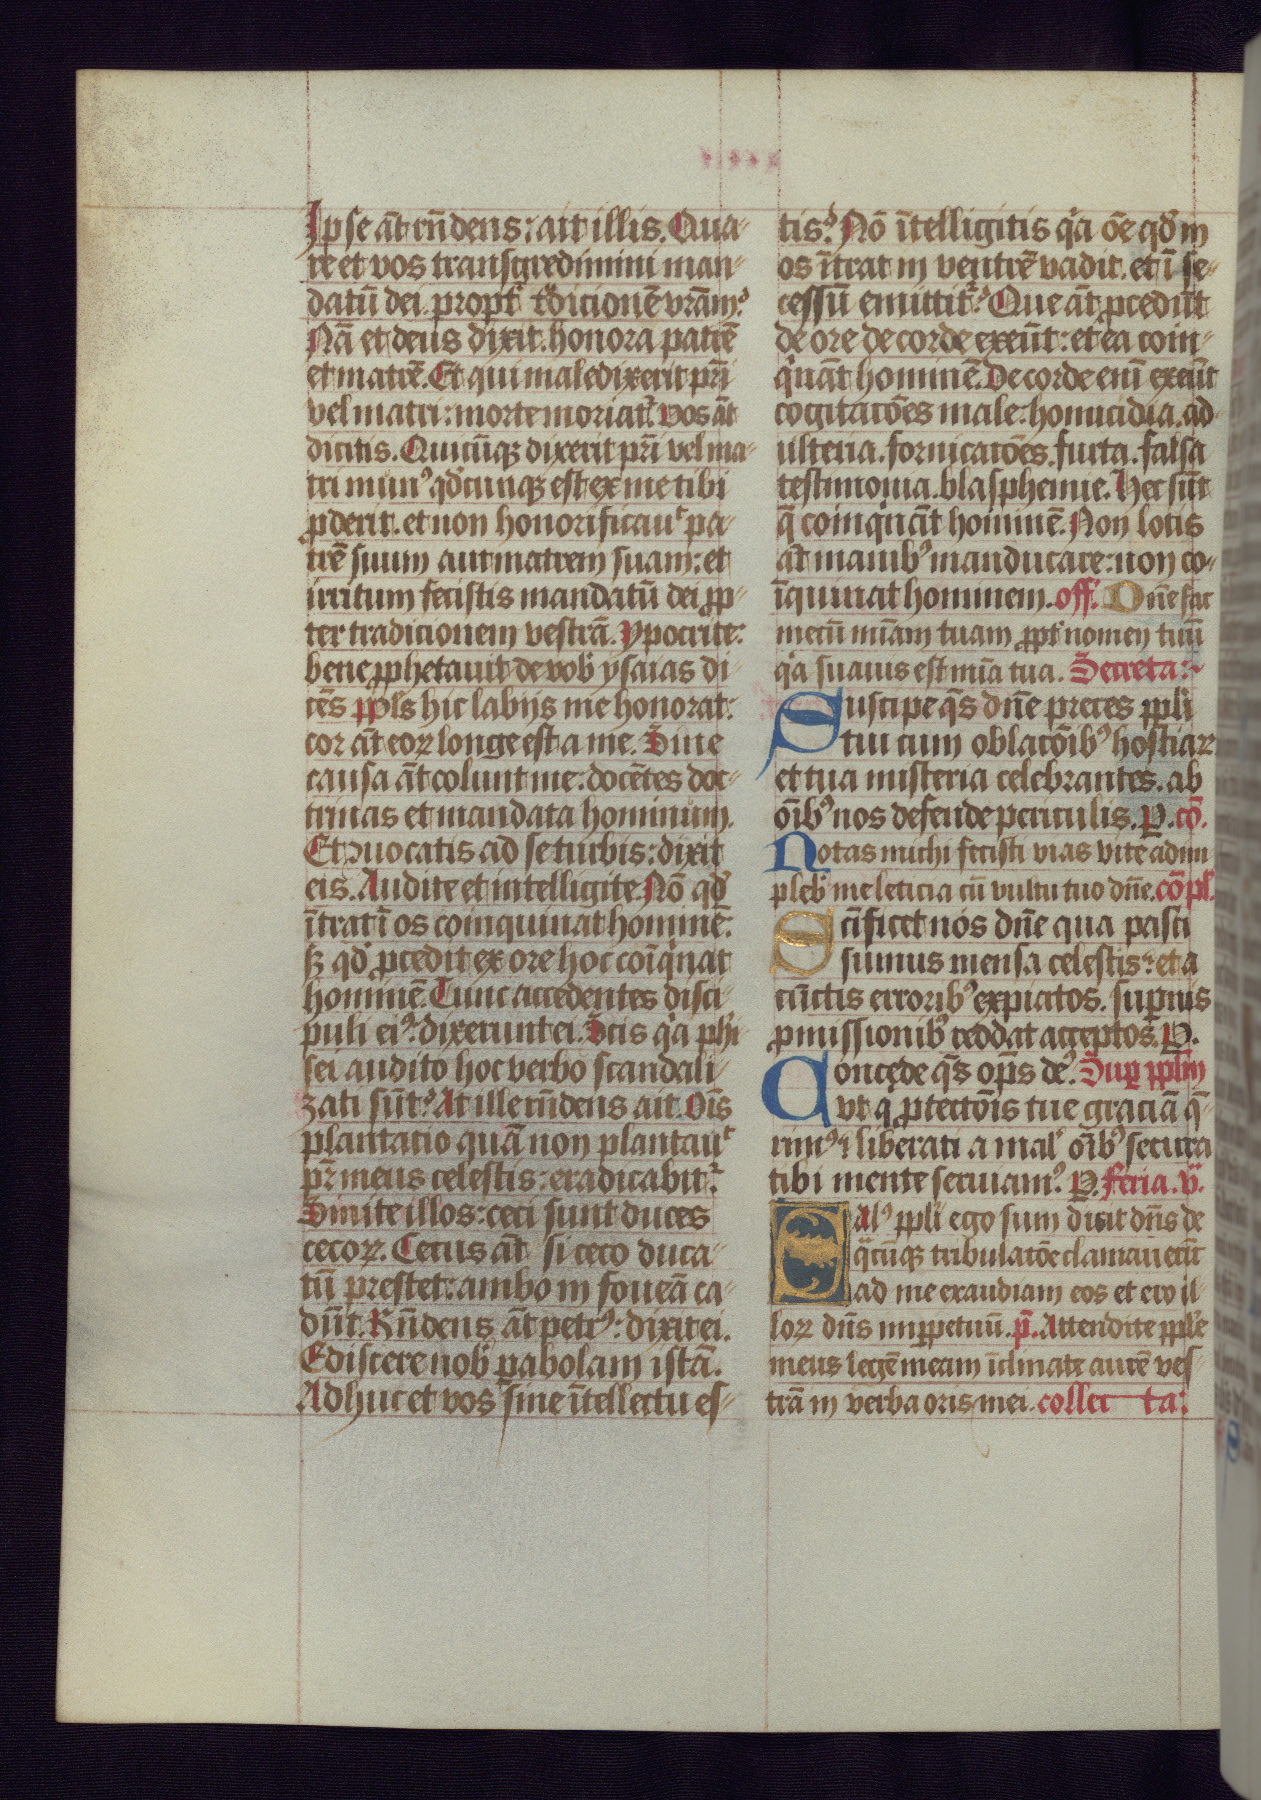 Ipse āt rn̄dens: ait illis. Qua-
re et vos transgredimini man-
datū dei propt͛ tͣdicionē vrām?
Nā et deus dixit. honora patrē
et matrē. Et qui maledixerit pr̄i
vel matri: morte moriat͛. vos āt
dicitis. Quicūqꝫ dixerit pr̄i vel ma-
tri mun᾽ qd̓cunqꝫ est ex me tibi
ꝓderit. et non honorificau͛ pa-
trē suum aut matrem suam: et
irritum fecistis mandatū dei ꝓp-
ter tradicionem vestrā. Ypocrite:
bene ꝓphetauit de vob̓ ysaias di-
cēs ppl̄s hic labijs me honorat:
cor āt eoꝝ longe est a me. Sine
causa āt colunt me: docētes doc-
trinas et mandata hominum.
Et ꝯuocatis ad se turbis: dixit
eis. Audite et intelligite. Nō qd̓
ītrat ī os coinquinat hominē:
sꝫ qd̓ ꝓcedit ex ore hoc coīq̓nat
hominē. Tunc accedentes disci-
puli ei᾽: dixerunt ei. Scis q̓a phi-
sei audito hoc verbo scandali-
zati sūt? At ille rn̄dens ait. Oīs
plantatio quā non plantau͛
pr̄ meus celestis: eradicabit͛.
Sinite illos: ceci sunt duces
cecoꝝ. Cecus āt si ceco duca-
tū prestet: ambo in foueā ca-
dūt. Rn̄dens āt petr᾽: dixit ei.
Edissere nob̓ ꝑabolam istā.
Adhuc et vos sine ītellectu es-
tis? Nō ītelligitis q̓a ōe qd̓ in
os ītrat in ventrē vadit. et ī se-
cessū emittit͛? Que āt ꝓcedūt
de ore de corde exeūt: et ea coin-
q̓nāt hominē. De corde enī exeūt
cogitacōes male: homicidia. ad-
ulteria. fornicacōes. furta. falsa
testimonia. blasphemie. Hec sūt
q̄ coinq̓nāt hominē. Non lotis
āt manib᾽ manducare: non co-
īquinat hominem. off. Dn̄e fac
mecū mīam tuam ꝓpt͛ nomen tuū
q̓a suauis est mīa tua. Secreta:
Suscipe qs̄ dn̄e preces ppl̄i
tui cum oblacōib᾽ hostiaꝝ
et tua misteria celebrantes. ab
oīb᾽ nos defende ꝑiculis. P. cō.
Notas michi fecisti vias vite adim-
pleb̓ me leticia cū vultu tuo dn̄e. cōpl̓.
Scīficet nos dn̄e qua pasti
sumus mensa celestis: et a
cūctis errorib᾽ expiatos. suꝑnis
ꝓmissionib᾽ reddat acceptos. P.
Concede qs̄ op̄s de᾽. Suꝑ ppl̄m
vt q̓ ꝓtectōis tue graciā q̄-
rim᾽: liberati a mal᾽ oīb᾽ secura
tibi mente seruiam᾽. P. feria. v.
Sal᾽ ppl̄i ego sum dicit dn̄s de
q̄cūqꝫ tribulatōe clamauerīt
ad me exaudiam eos et ero il-
loꝝ dn̄s in ꝑpetuū. p̄. Attendite ppl̄e
meus legē meam īclinate aurē ves-
trā in verba oris mei. collec ta: